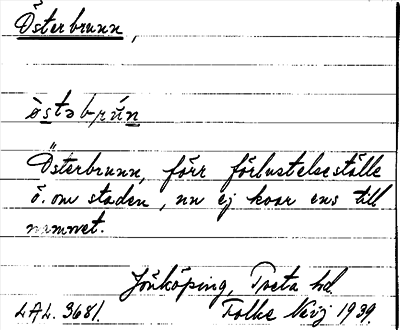 Österbrunn,
òstəbrún
Österbrunn, förr förlustelseställe
ö. om staden, nu ej kvar ens till
namnet.
Jönköping, Tveta hd
LAL. 3681. Folke Neij 1939